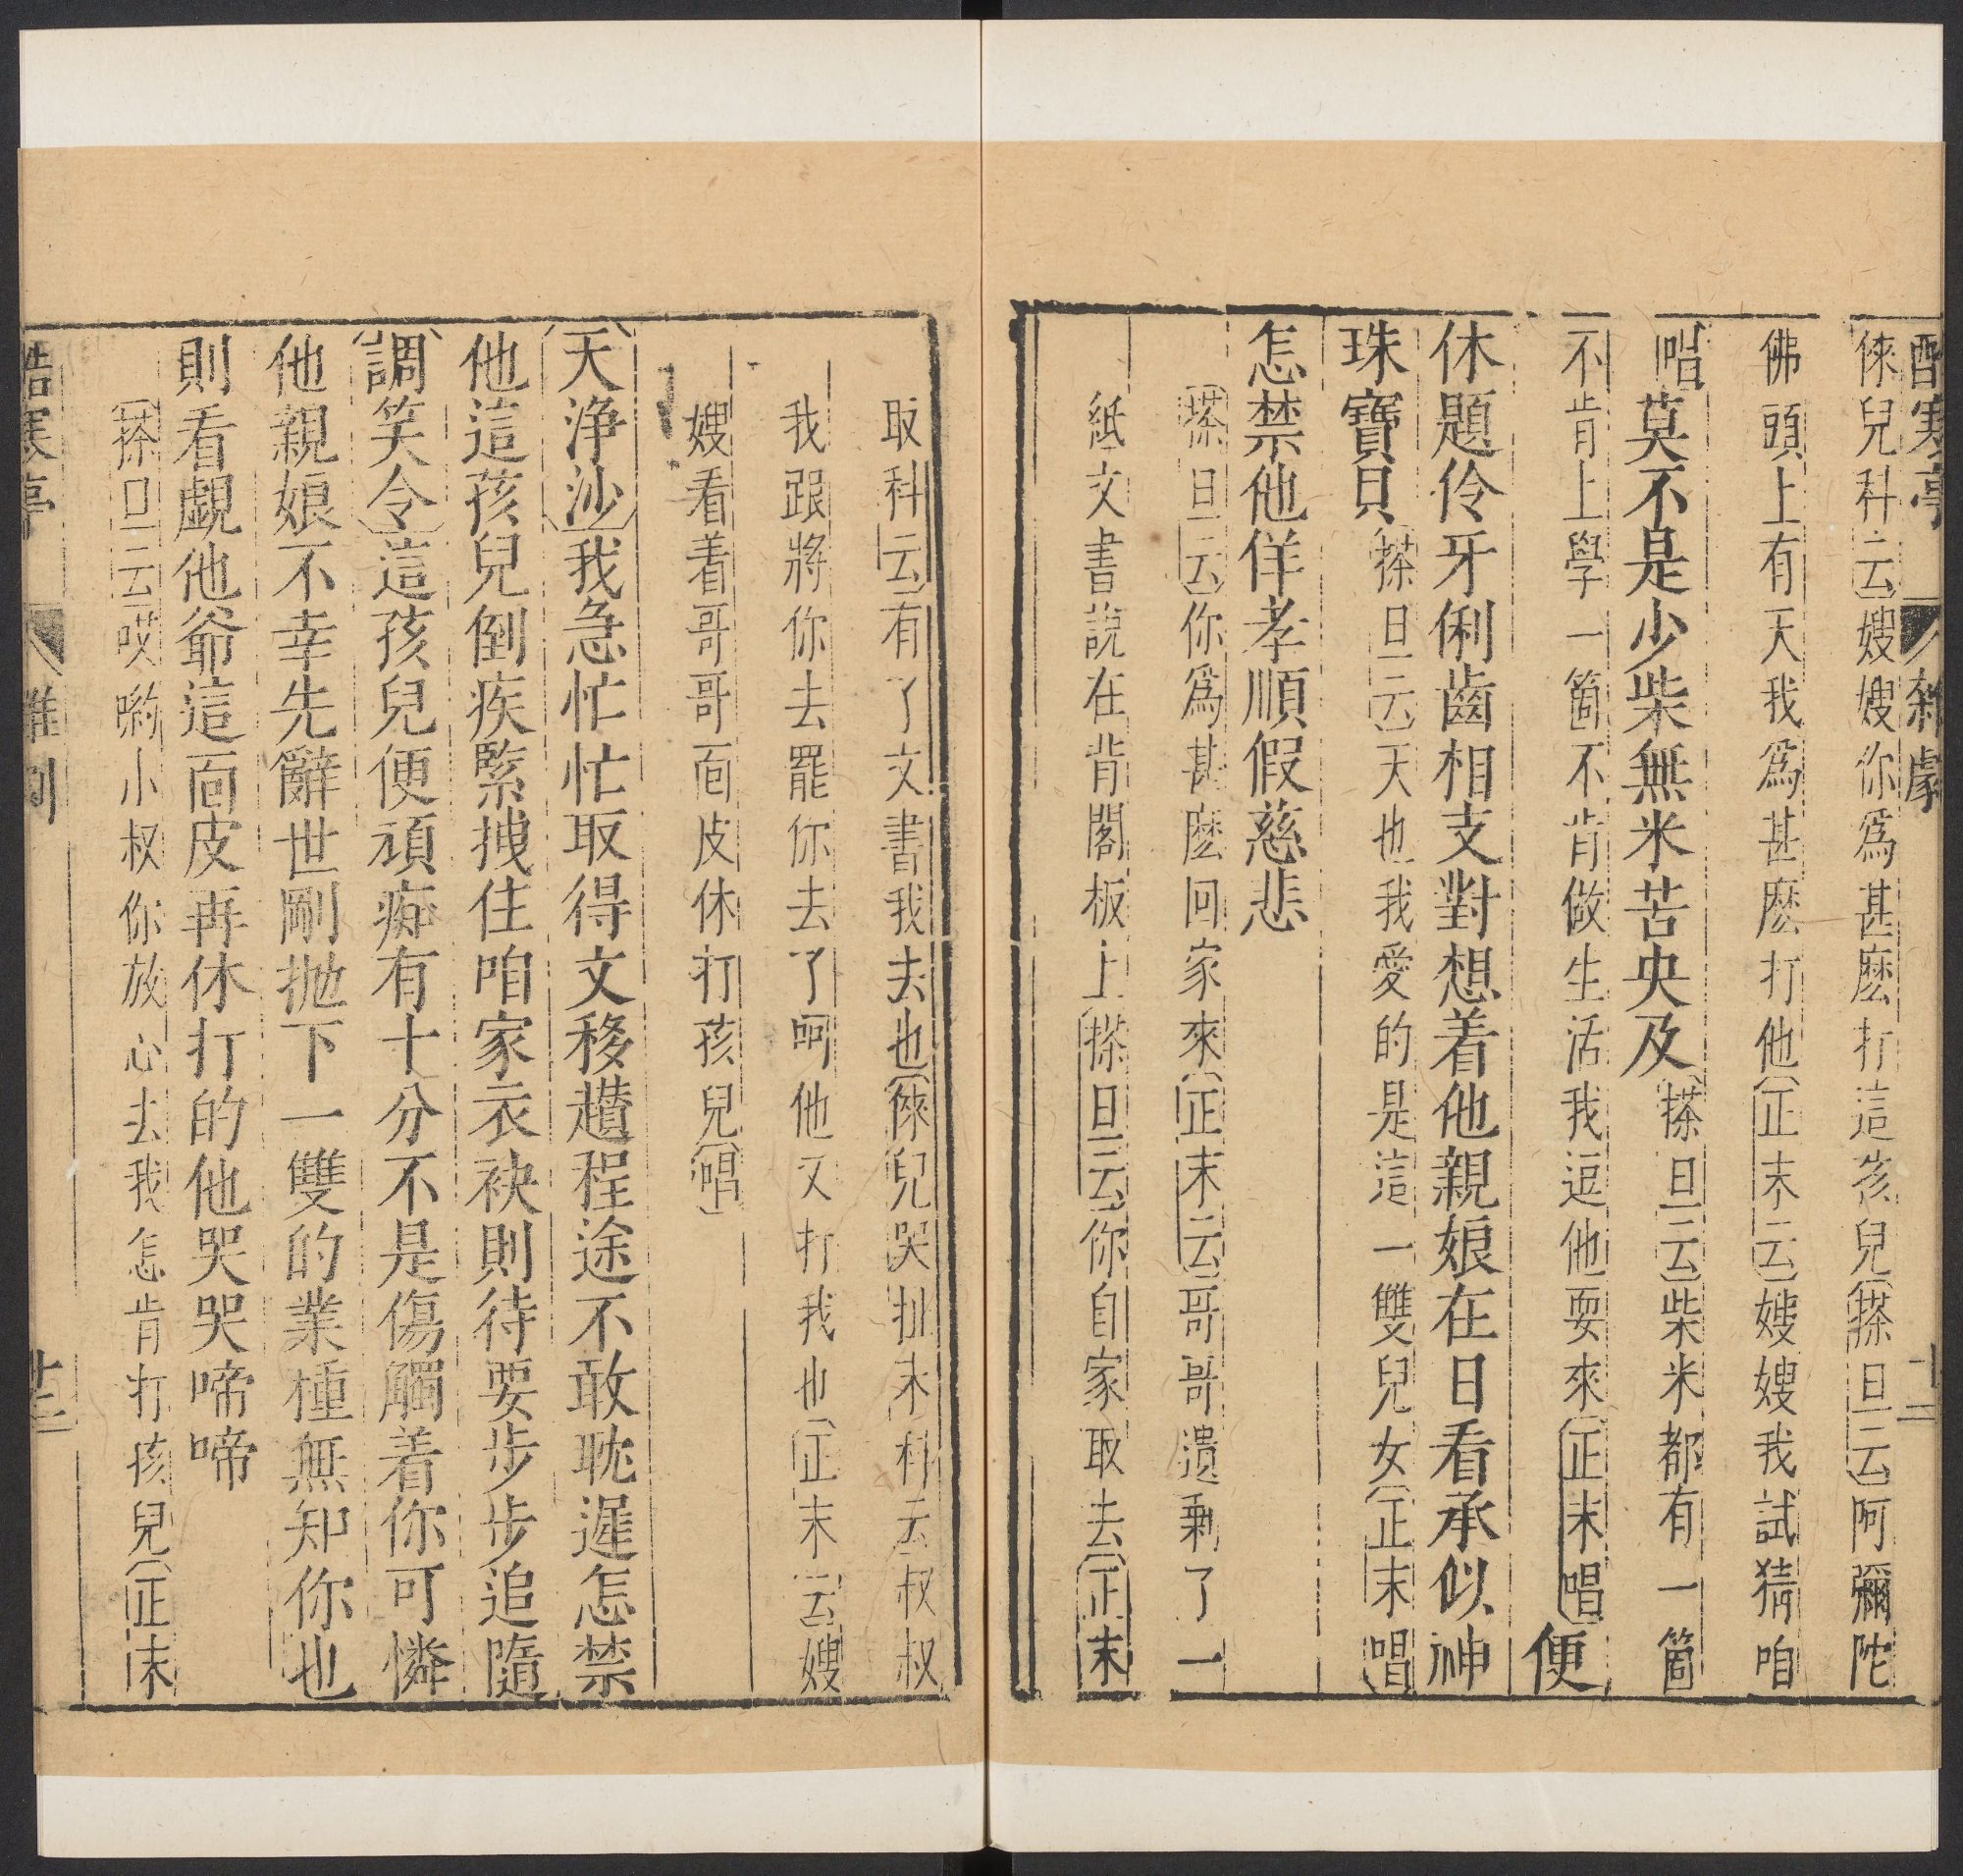 酷寒亭 雜劇 十二
俫兒科云嫂嫂你爲甚麽打這孩兒搽旦云阿彌陀
佛頭上有天我爲甚麽打他正末云嫂嫂我試猜咱
唱莫不是少柴無米苦央及搽旦云柴米都有一箇
不肯上學一箇不肯做生活我逗他耍來正末唱便
休題伶牙俐齒相支對想着他親娘在日看承似神
珠寶貝搽旦云天也我愛的是這一雙兒女正末唱
怎禁他佯孝順假慈悲
搽旦云你爲甚麽回家來正末云哥哥遺剩了一
紙文書說在背閣板上搽旦云你自家取去正末
取科云有了文書我去也俫兒哭扯末科云叔叔
我跟將你去罷你去了呵他又打我也正末云嫂
嫂看着哥哥面皮休打孩兒唱
天浄沙我急忙忙取得文移趲程途不敢耽遲怎禁
他這孩兒倒疾緊拽住咱家衣袂則待要步步追隨
調笑令這孩兒便頑痴有十分不是傷觸着你可憐
他親娘不幸先辭世剛抛下一雙的業種無知你也
則看覷他爺這面皮再休打的他哭哭啼啼
搽旦云哎喲小叔你放心去我怎肯打孩兒正末
酷寒亭 雜劇 十二